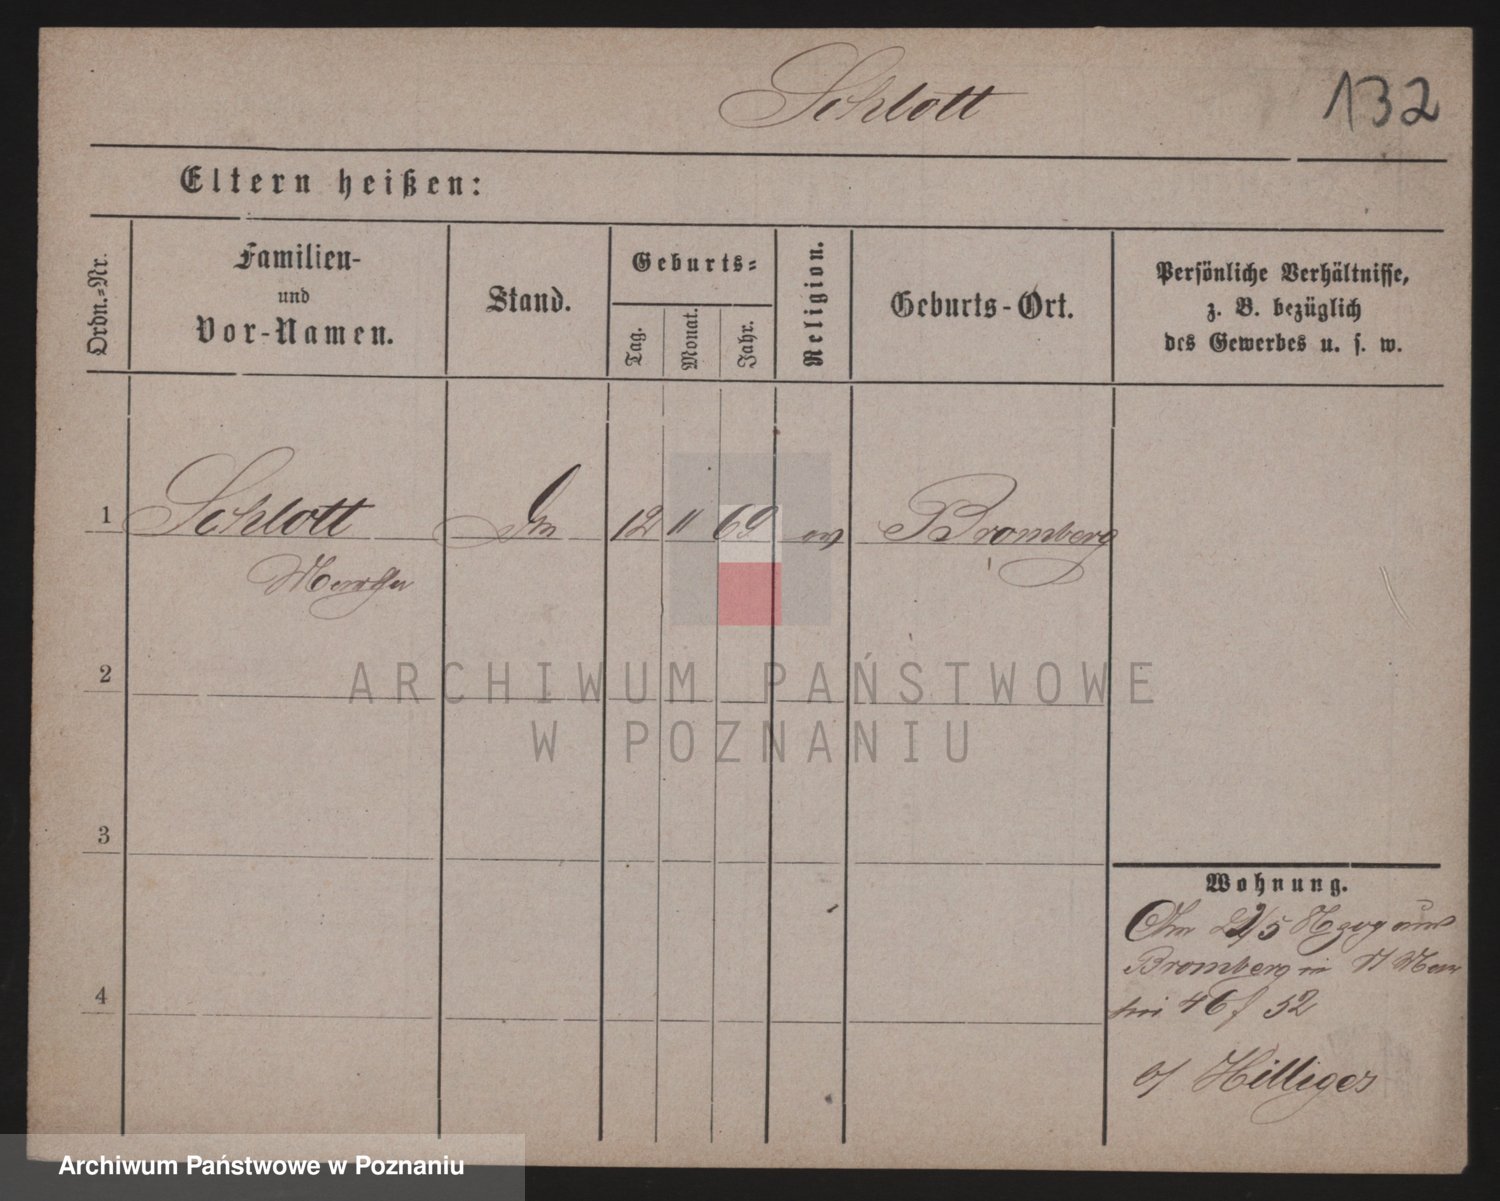 Schlott
132
Eltern heißen:
Ordn.=Nr.
Familien-
und
Vor-Namen.
Stand.
Geburts=
Tag.
Monat.
Jahr.
Religion.
Geburts-Ort.
Persönliche Verhältnisse,
z. B. bezüglich
des Gewerbes u. s. w.
1
Schlott
12 11 69
ev
Bromberg
Martha
2
ARCHIWUM PAŃSTWOWE
W POZNANIU
3
4
Wohnung.
22/5
Bromberg in
46
b/ Hilliges
Archiwum Państwowe w Poznaniu